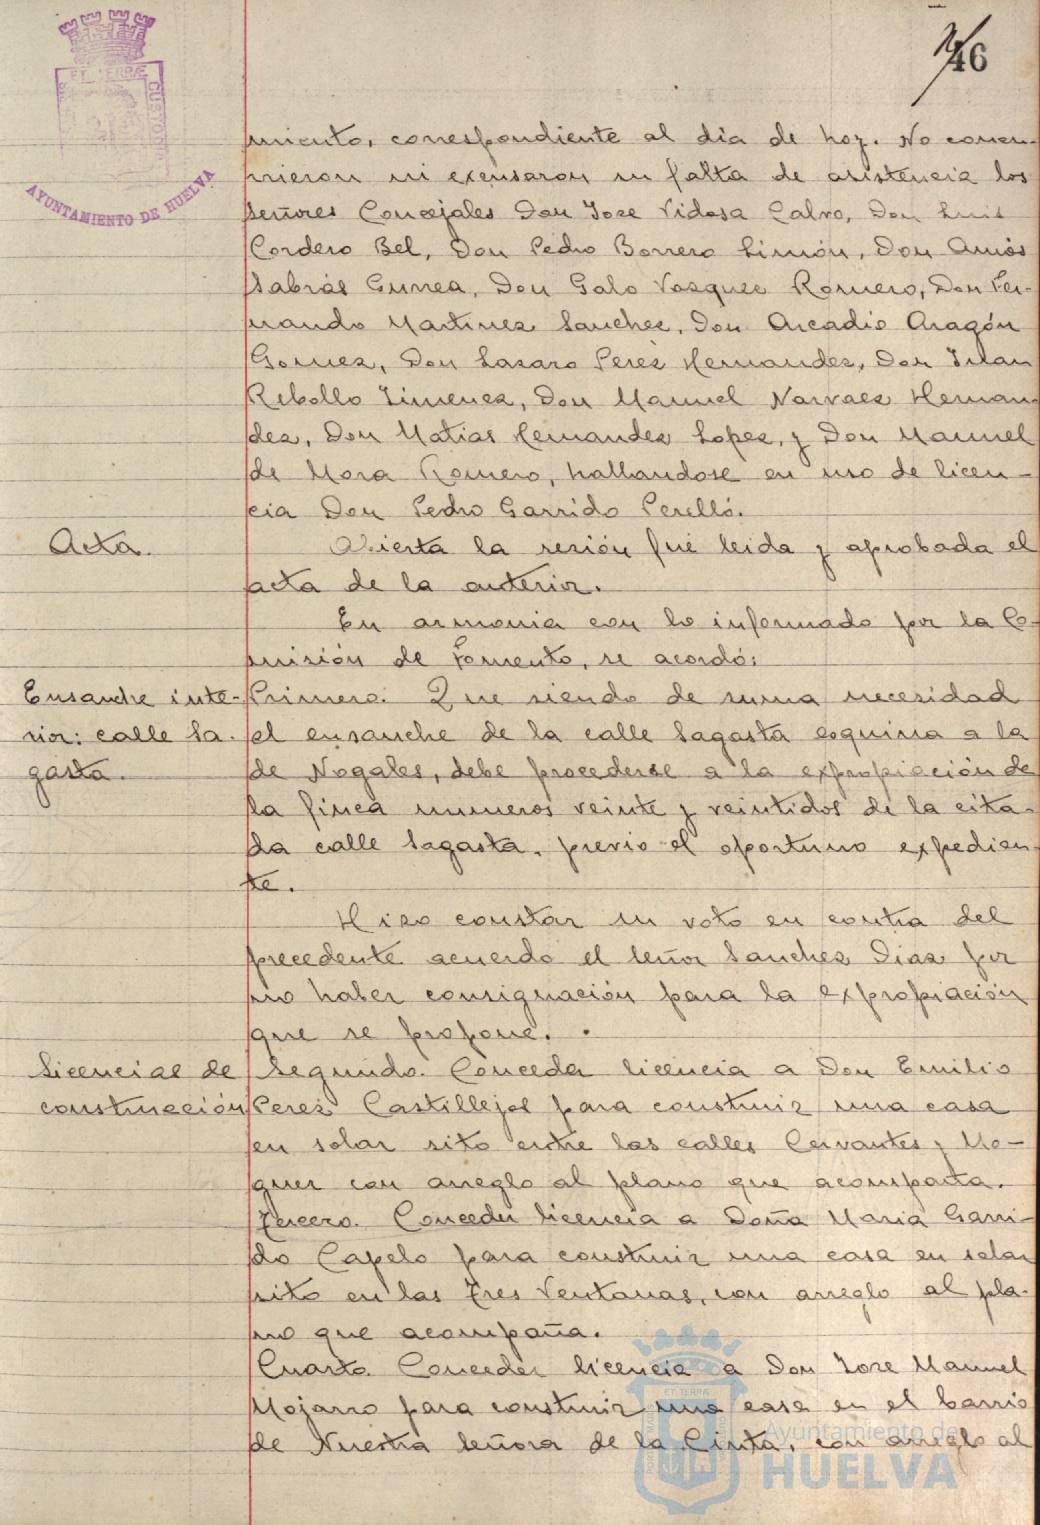 46
ET TERRÆ
CUSTODIA
AYUNTAMIENTO DE HUELVA
miento, correspondiente al dia de hoy. No concu-
rrieron ni excusaron su falta de asistencia los
señores Concejales Don Jose Vidosa Calvo, Don Luis
Cordero Bel, Don Pedro Borrero Limón, Don Amós
Sabrás Gurrea, Don Galo Vazquez Romero, Don Fer-
nando Martinez Sanchez, Don Arcadio Aragón
Gomez, Don Lazaro Perez Hernandez, Don Juan
Rebollo Jimenez, Don Manuel Narvaez Hernan-
dez, Don Matias Hernandez Lopez, y Don Manuel
de Mora Romero, hallandose en uso de licen-
cia Don Pedro Garrido Perelló.
Acta. Abierta la sesión fué leida y aprobada el
acta de la anterior.
En armonia con lo informado por la Co-
misión de Fomento, se acordó:
Ensanche inte- Primero. Que siendo de suma necesidad
rior: calle Sa- el ensanche de la calle Sagasta esquina a la
gasta. de Nogales, debe procederse a la expropiación de
la finca numeros veinte y veintidos de la cita-
da calle Sagasta, previo el oportuno expedien-
te.
Hizo constar su voto en contra del
precedente acuerdo el señor Sanchez Diaz por
no haber consignación para la expropiación
que se propone.
Licencias de Segundo. Conceder licencia a Don Emilio
construcción Perez Castillejos para construir una casa
en solar sito entre las calles Cervantes y Mo-
guer con arreglo al plano que acompaña.
Tercero. Conceder licencia a Doña Maria Garri-
do Capelo para construir una casa en solar
sito en las Tres Ventanas, con arreglo al pla-
no que acompaña.
Cuarto. Conceder licencia a Don Jose Manuel
Mojarro para construir una casa en el barrio
de Nuestra Señora de la Cinta, con arreglo al
Ayuntamiento de
HUELVA